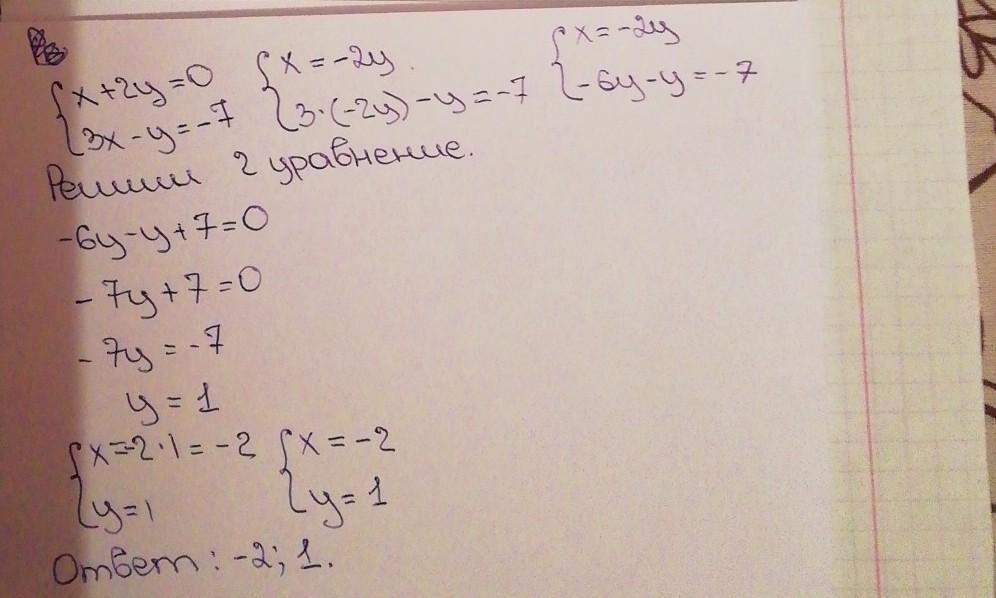 {x+2y=0 {x=-2y. {x=-2y
{3x-y=-7 {3·(-2y)-y=-7 {-6y-y=-7
Решим 2 уравнение.
-6y-y+7=0
-7y+7=0
-7y=-7
y=1
{x=-2·1=-2 {x=-2
{y=1 {y=1
Ответ: -2; 1.